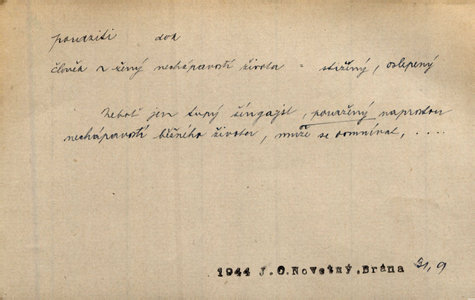 poraziti dok
člověk z žený nechápavostí života = stižený, oslepený
Neboť jen tupý šingajst, poražený naprostou
nechápavostí běžného života, může se domnívat, ....
1944 J.O.Novotný.Brána 31,9